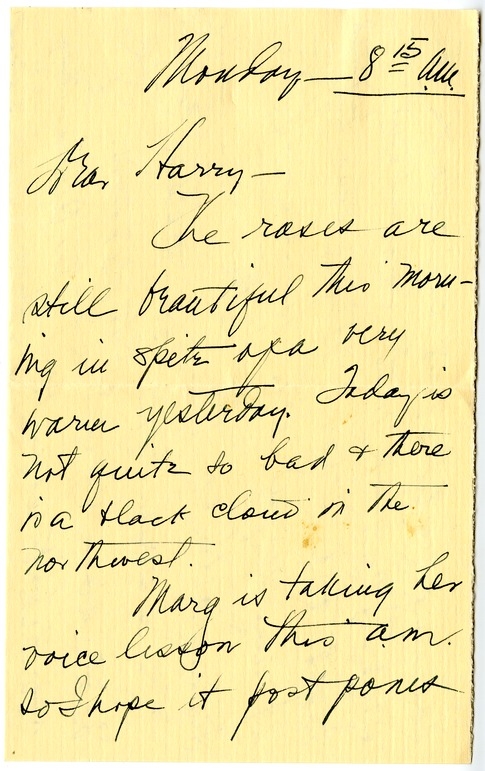 Monday — 8 15 a.m.
Dear Harry —
The roses are
still beautiful this morn-
ing in spite of a very
warm yesterday. Today is
not quite so bad & there
is a black cloud in the
northwest.
Marg is taking her
voice lesson this a.m.
so I hope it postpones